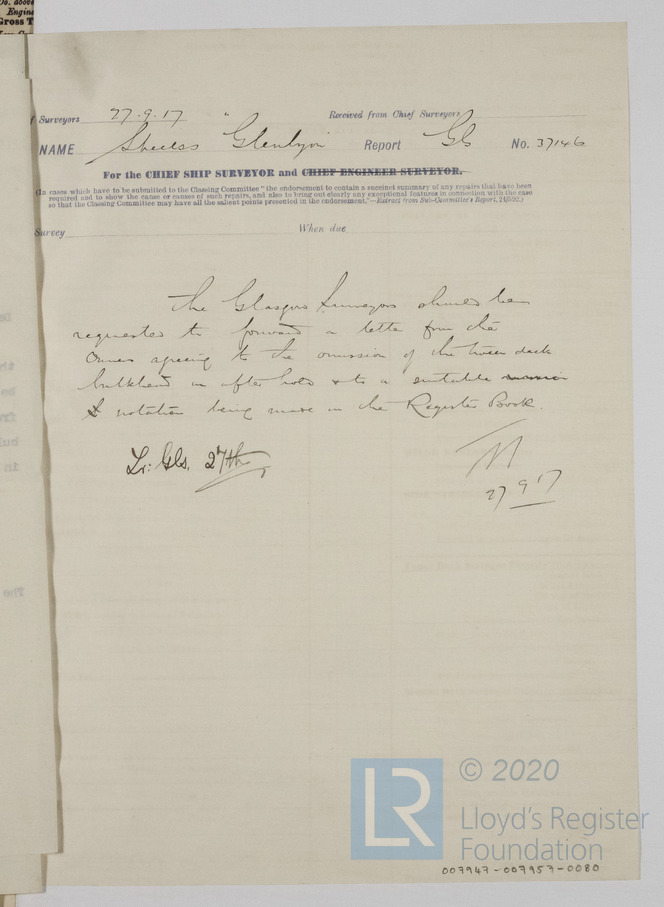 Do. above
Engine
Gross T
Surveyors 27.9.17 " Received from Chief Surveyors
NAME Glenlyon Report Gls No. 37146
For the CHIEF SHIP SURVEYOR and CHIEF ENGINEER SURVEYOR.
(In cases which have to be submitted to the Classing Committee "the endorsement to contain a succinct summary of any repairs that have been
required and to show the cause or causes of such repairs, and also to bring out clearly any exceptional features in connection with the case
so that the Classing Committee may have all the salient points presented in the endorsement."—Extract from Sub-Committee's Report,
Survey When due
The Glasgow Surveyors should be
requested to forward a letter from the
Owners agreeing to the omission of the tween deck
bulkhead in after hold & to a suitable
notation being made in the Register Book.
Lr: Gls. 27th
27 9 17
The
LR
© 2020
Lloyd's Register
Foundation
007947-007957-0080